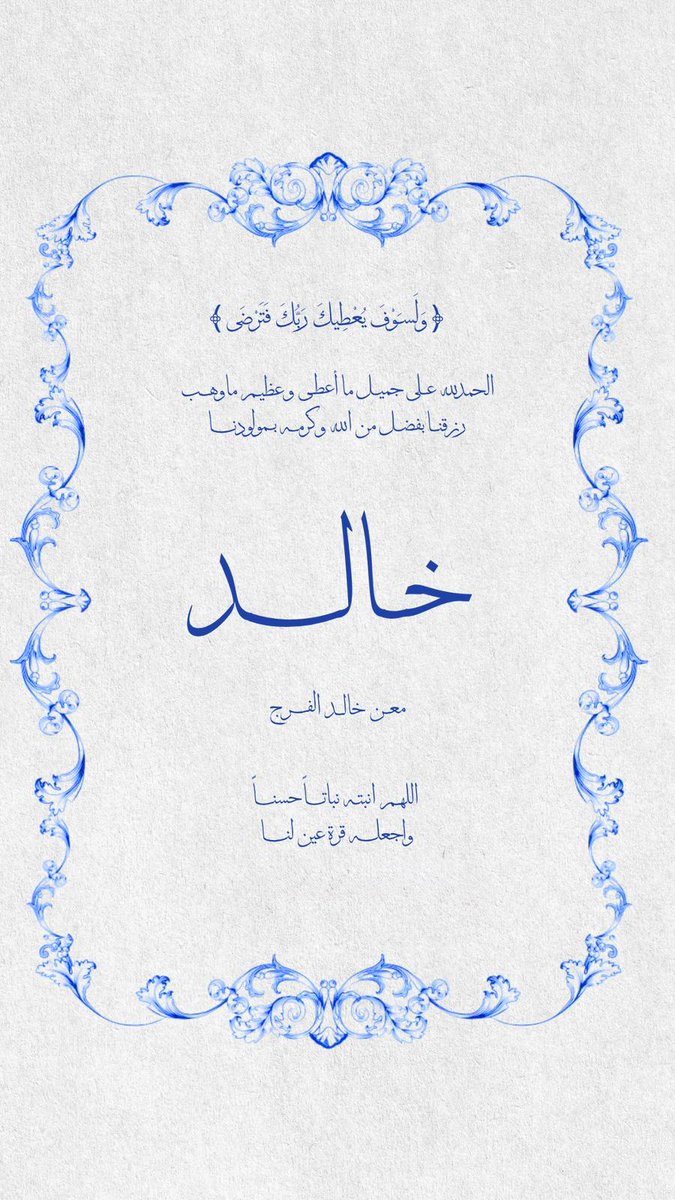 ﴿ وَلَسَوْفَ يُعْطِيكَ رَبُّكَ فَتَرْضَى ﴾
الحمدلله على جميل ما أعطى وعظيم ماوهب
رزقنا بفضل من الله وكرمه بمولودنا
خالد
معن خالد الفرج
اللهم انبته نباتاً حسناً
واجعله قرة عين لنا